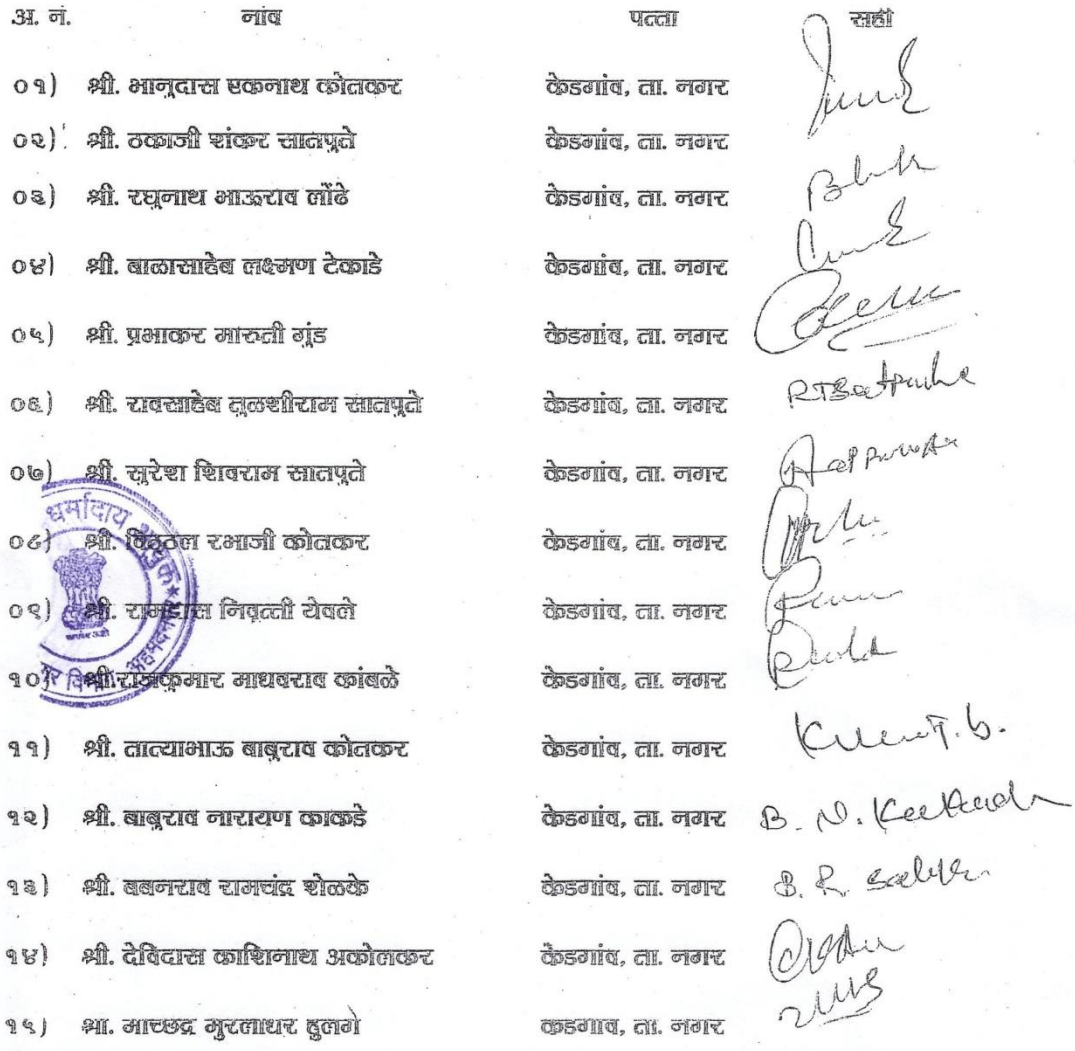 अ. नं. नांव पत्ता सही
०१) श्री. भानुदास एकनाथ कोतकर केडगांव, ता. नगर
०२) श्री. ठकाजी शंकर सातपुते केडगांव, ता. नगर
०३) श्री. रघुनाथ भाऊराव लोंढे केडगांव, ता. नगर
०४) श्री. बाळासाहेब लक्ष्मण टेकाडे केडगांव, ता. नगर
०५) श्री. प्रभाकर मारुती गुंड केडगांव, ता. नगर
०६) श्री. रावसाहेब तुळशीराम सातपुते केडगांव, ता. नगर
०७) श्री. सुरेश शिवराम सातपुते केडगांव, ता. नगर
०८) श्री. विठ्ठल रभाजी कोतकर केडगांव, ता. नगर
०९) श्री. रामदास निवृत्ती येवले केडगांव, ता. नगर
१०) श्री.राजकुमार माधवराव कांबळे केडगांव, ता. नगर
११) श्री. तात्याभाऊ बाबुराव कोतकर केडगांव, ता. नगर
१२) श्री. बाबुराव नारायण काकडे केडगांव, ता. नगर B. N.
१३) श्री. बबनराव रामचंद्र शेळके केडगांव, ता. नगर B. R.
१४) श्री. देविदास काशिनाथ अकोलकर केडगांव, ता. नगर
१५) श्री. मच्छिंद्र मुरलीधर हुलगे केडगांव, ता. नगर
धर्मादाय आयुक्त
अहमदनगर